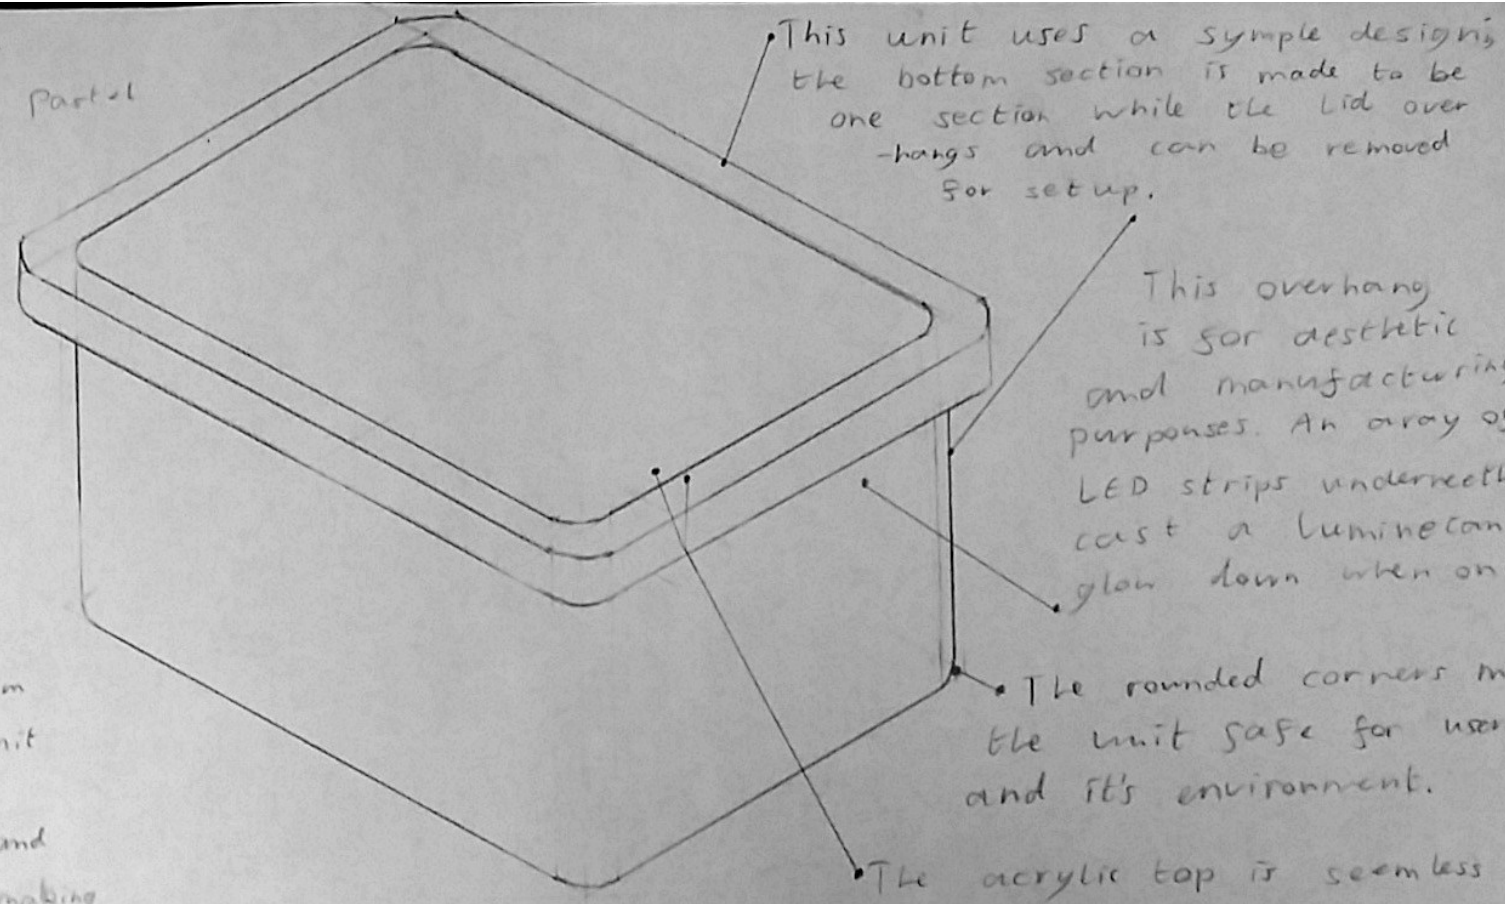 Pastel
This unit uses a symple design;
the bottom section is made to be
one section while the lid over
-hangs and can be removed
for setup.
This overhang
is for aesthetic
and manufacturing
purponses. An array of
LED strips underneeth
cast a luminecan
glow down when on
The rounded corners m
the unit safe for user
and it's environment.
The acrylic top is seemless
m
nit
and
making